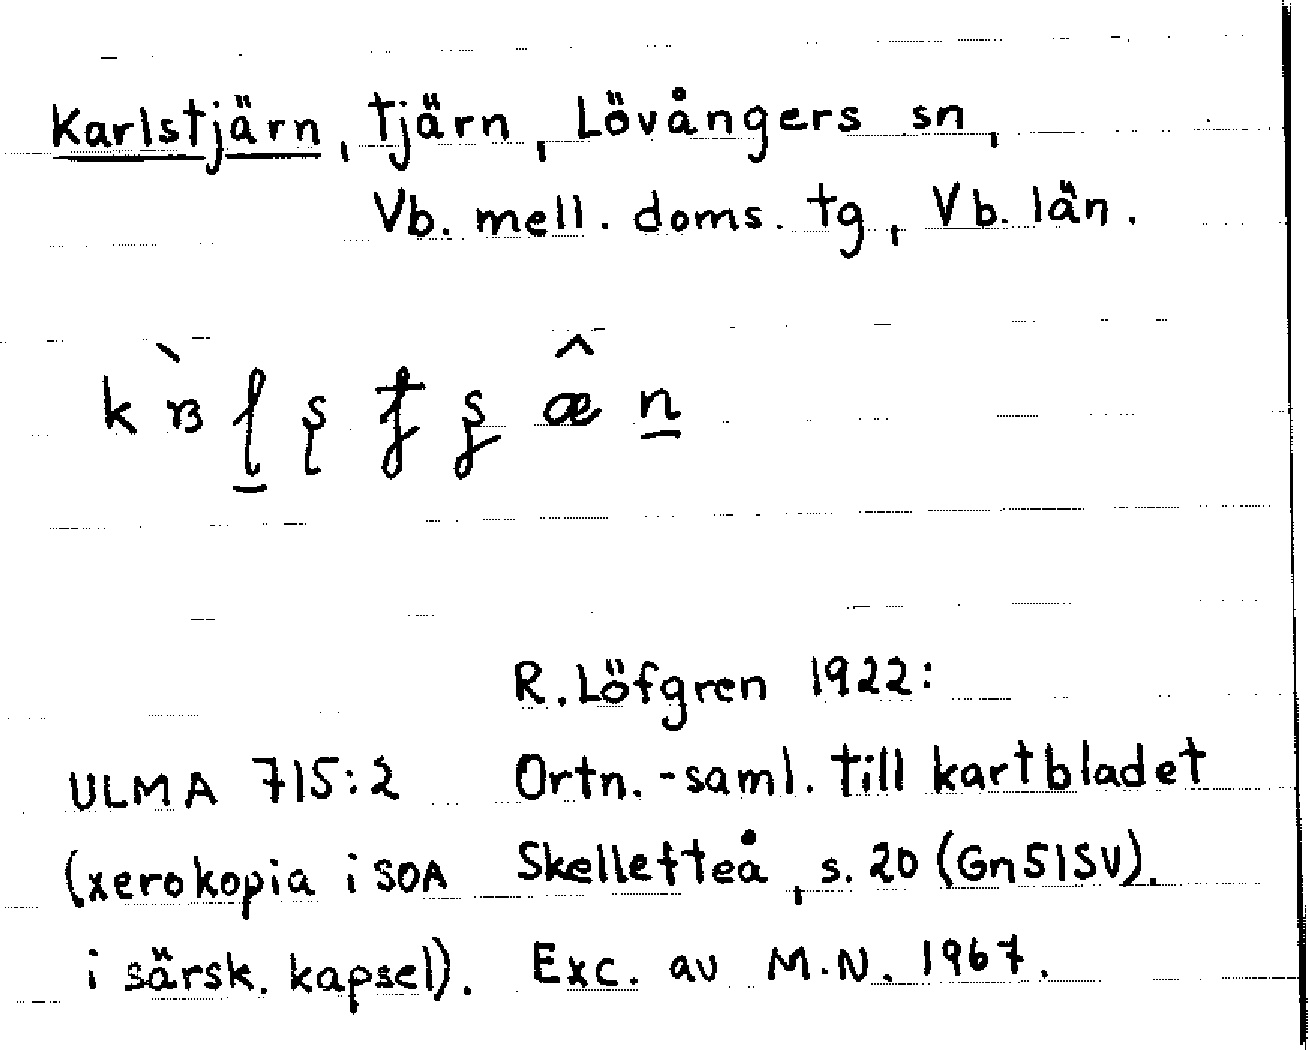 Karlstjärn, tjärn, Lövångers sn,
Vb. mell. doms. tg, Vb. län.
R. Löfgren 1922:
ULMA 715:2 Ortn.-saml. till kartbladet
(xerokopia i SOA Skelletteå, s. 20 (Gn51SV).
i särsk. kapsel). Exc. av M.N. 1967.